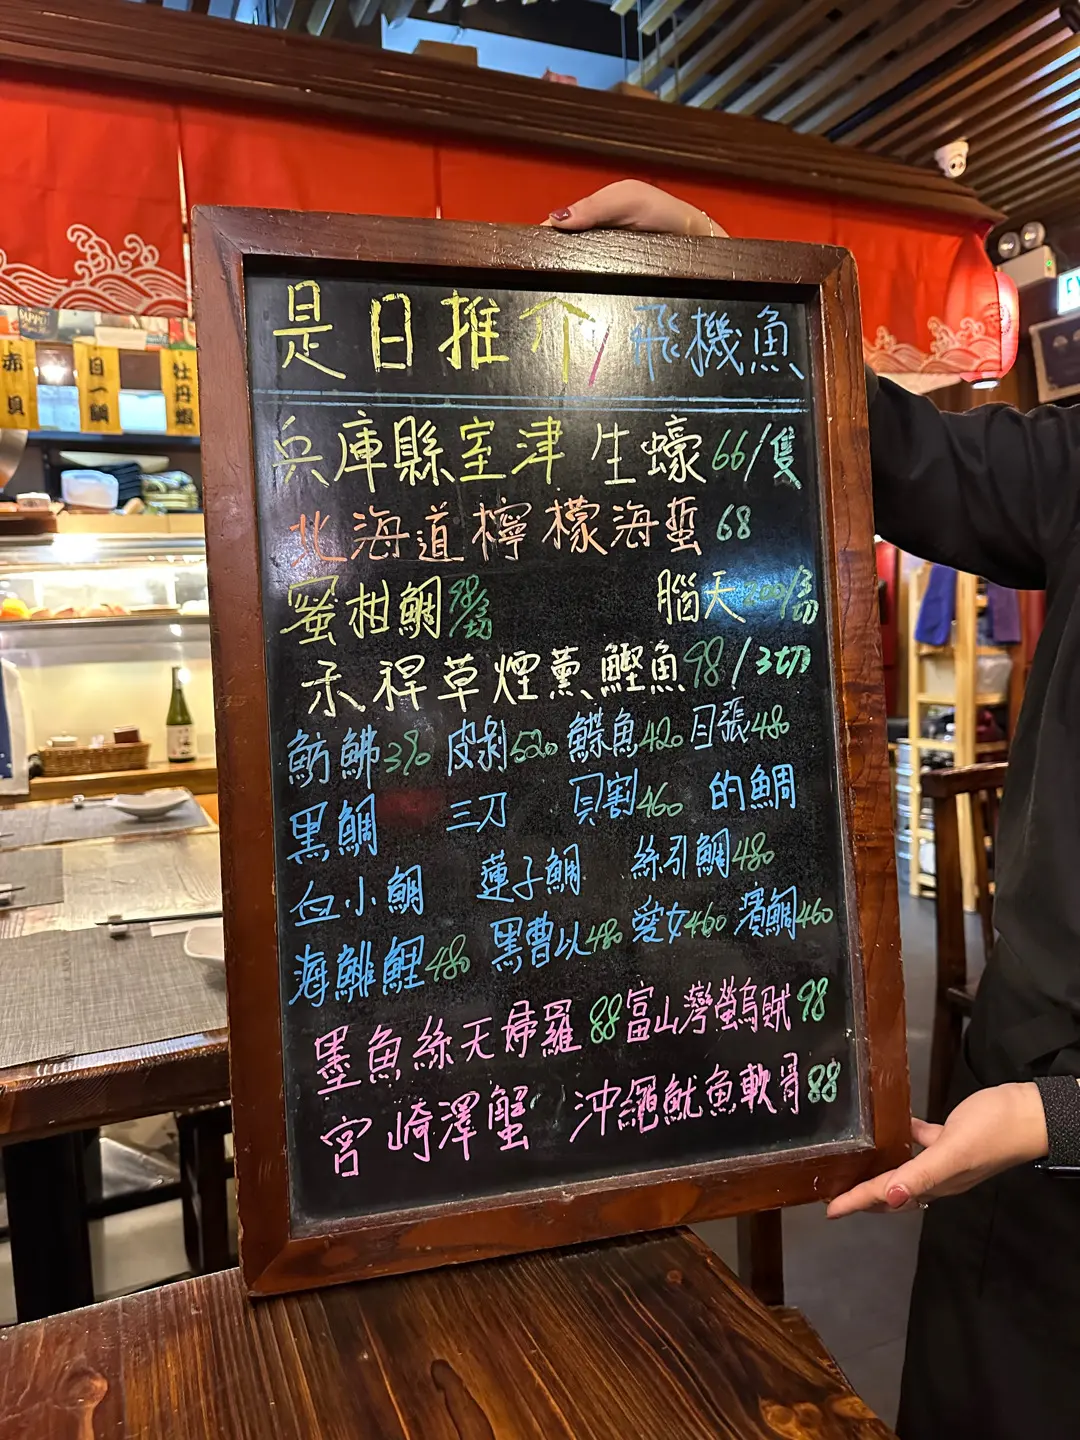 是日推介/飛機魚
兵庫縣室津 生蠔66/隻
北海道檸檬海蜇 68
蜜柑鯛98/3切 腦天200/3切
禾稈草煙薰鰹魚98/3切
魴鮄390 皮剥520 鰈魚420 目張480
黑鯛 三刀 貝割460 的鯛
白小鯛 蓮子鯛 絲引鯛480
海鯡鯉480 黑曹以480 愛女460 濱鯛460
墨魚絲天婦羅88 富山灣螢烏賊98
宮崎澤蟹 沖繩魷魚軟骨88
赤貝
目一鯛
牡丹蝦